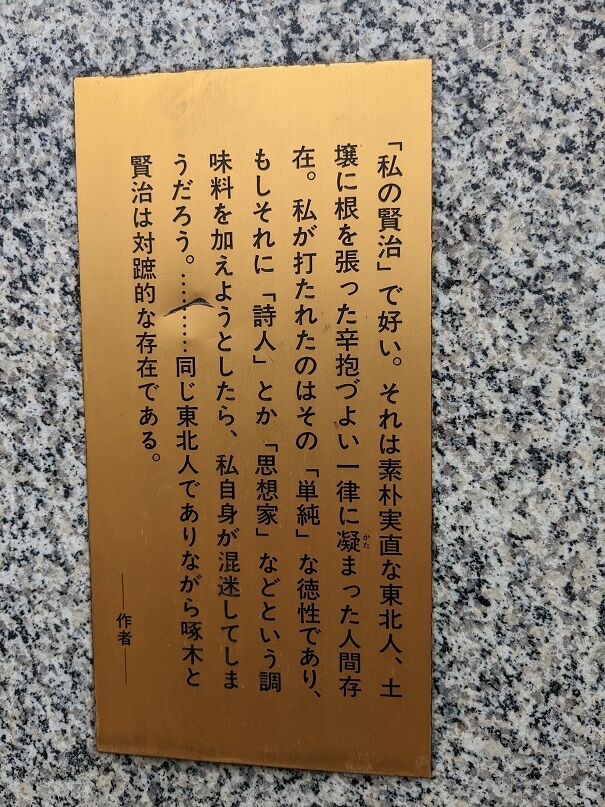 「私の賢治」で好い。それは素朴実直な東北人、土
壌に根を張った辛抱づよい一律に凝まった人間存
かた
在。私が打たれたのはその「単純」な徳性であり、
もしそれに「詩人」とか「思想家」などという調
味料を加えようとしたら、私自身が混迷してしま
うだろう。…………同じ東北人でありながら啄木と
賢治は対蹠的な存在である。
――作者――